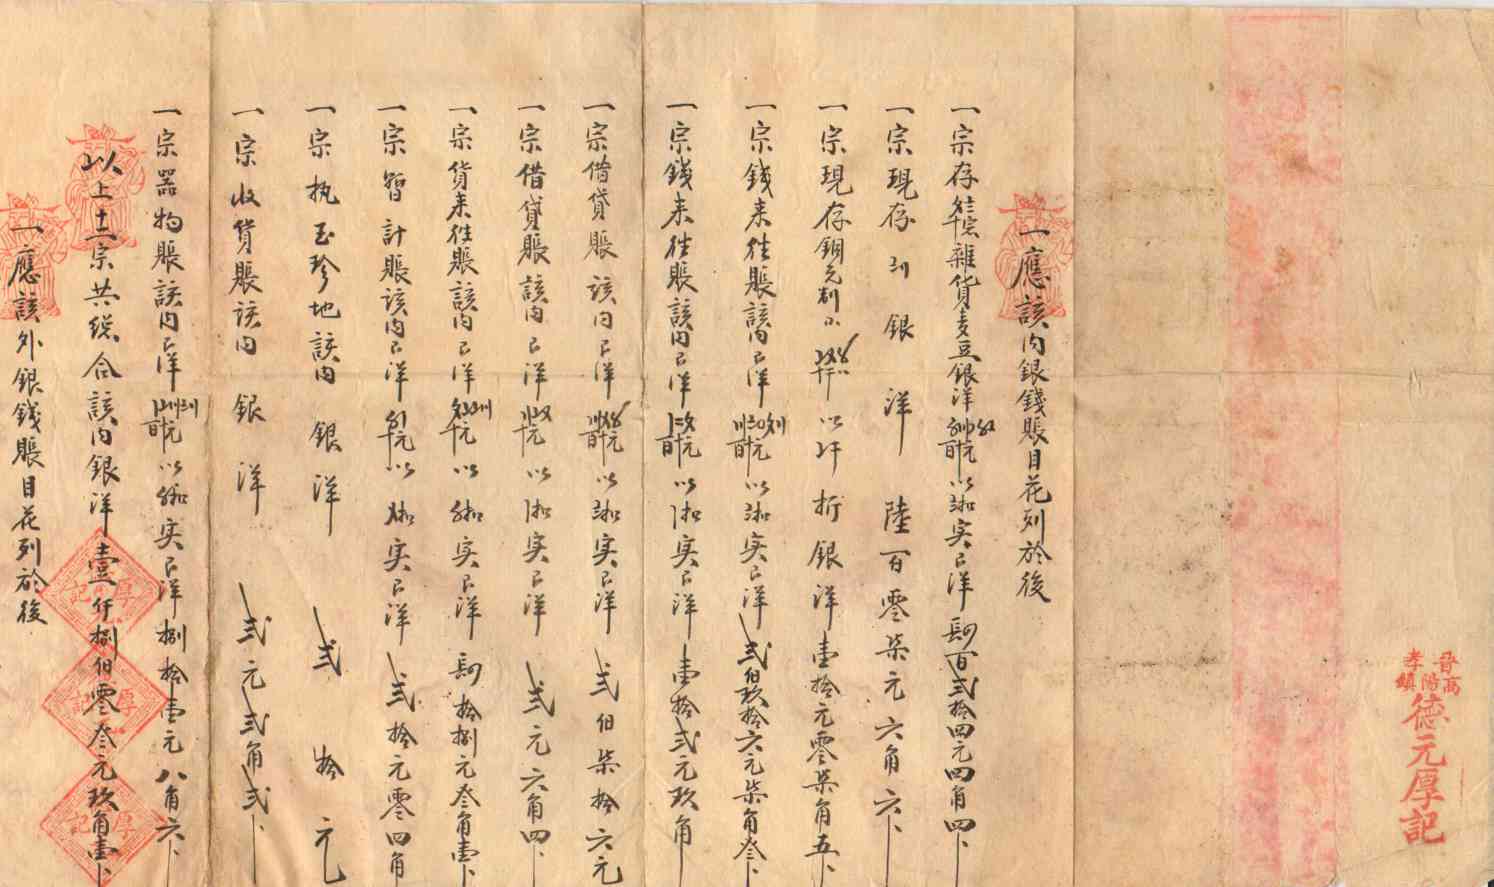 晋高
孝陽鎮
德元厚記
一應該内銀錢賬目花列於後
一宗存雜貨麦豆銀洋以实洋百弍拾四元四角四卜
一宗現存銀洋陸百零柒元六角六卜
一宗現存銅元以折銀洋壹拾元零柒角五卜
一宗錢来往賬該内洋百元以实洋弍伯玖拾六元柒角叁卜
一宗錢来往賬該内洋百元以实洋壹拾弍元玖角
一宗借貸賬該内洋百元以实洋弍伯柒拾六元
一宗借貸賬該内洋元以实洋弍元六角四卜
一宗貨来往賬該内洋元以实洋拾捌元叁角壹卜
一宗暫計賬該内洋元以实洋弍拾元零四角
一宗執玉珍地該内銀洋弍拾元
一宗收貨賬該内銀洋弍元弍角弍卜
一宗器物賬該内洋百元以实洋捌拾壹元八角六卜
以上十二宗共總合該内銀洋壹仟捌伯零叁元玖角壹卜
厚記
厚記
厚記
一應該外銀錢賬目花列於後